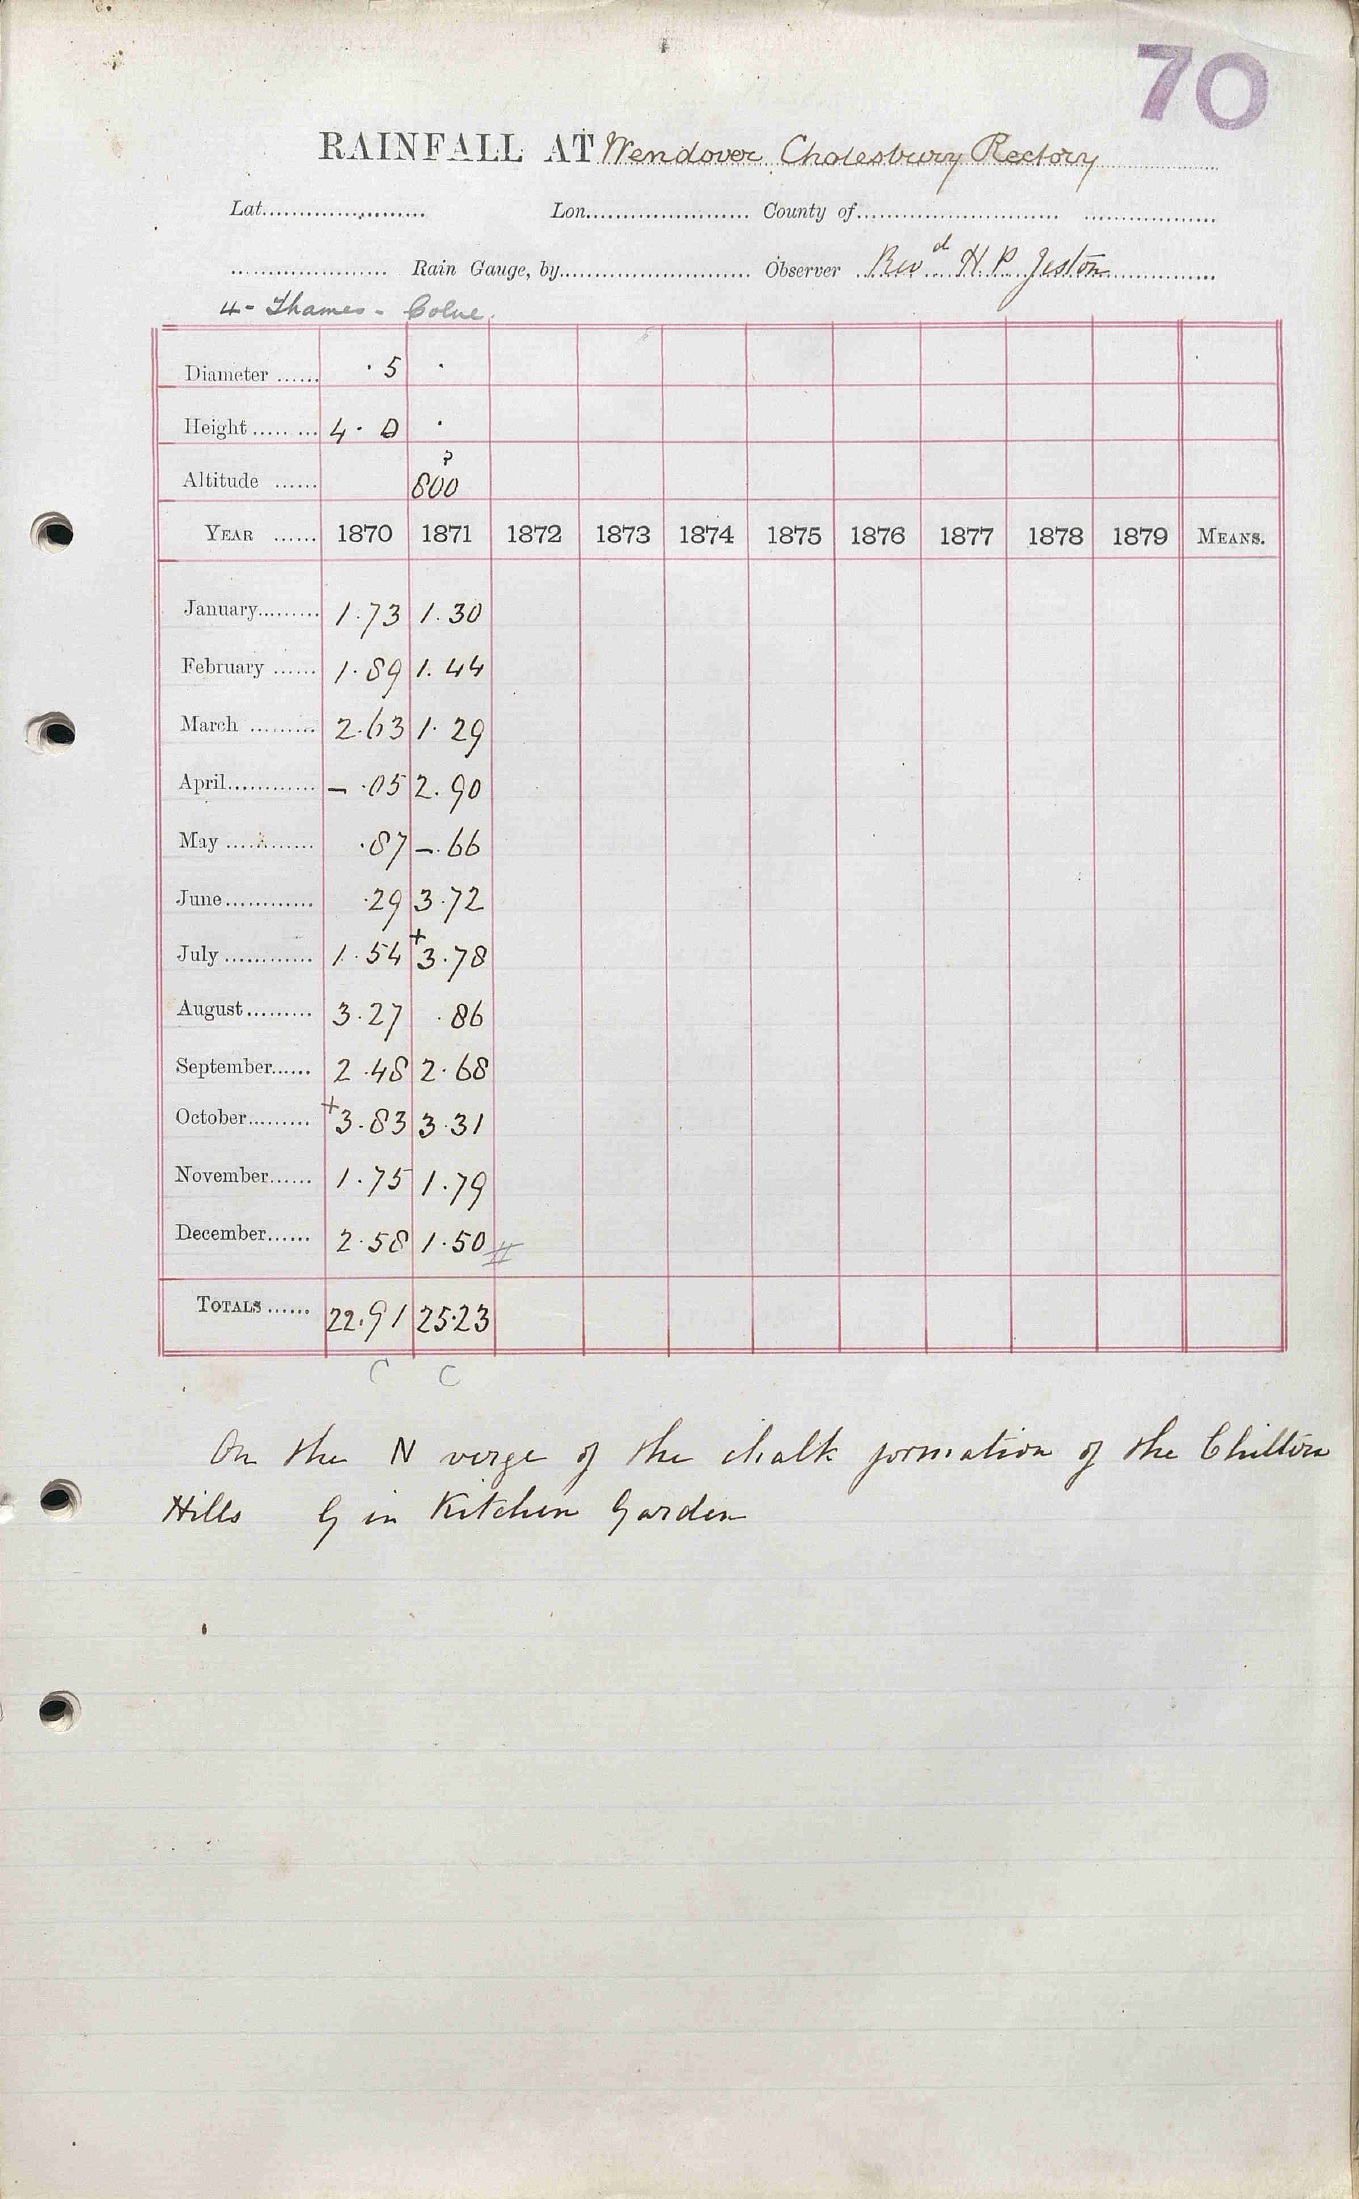 70
RAINFALL AT Wendover, Cholesbury Rectory
Lat. Lon. County of
Rain Gauge, by Observer Revd H. P. Jeston
4 - Thames - Colne.
Diameter 5
Height 4. 0
Altitude ? 800
YEAR 1870 1871 1872 1873 1874 1875 1876 1877 1878 1879 MEANS.
January 1.73 1.30
February 1.89 1.44
March 2.63 1.29
April — .05 2.90
May .87 —.66
June .29 3.72
July 1.54 +3.78
August 3.27 .86
September 2.48 2.68
October +3.83 3.31
November 1.75 1.79
December 2.58 1.50 #
TOTALS 22.91 25.23
C C
On the N verge of the chalk formation of the Chiltern
Hills G in Kitchen Garden